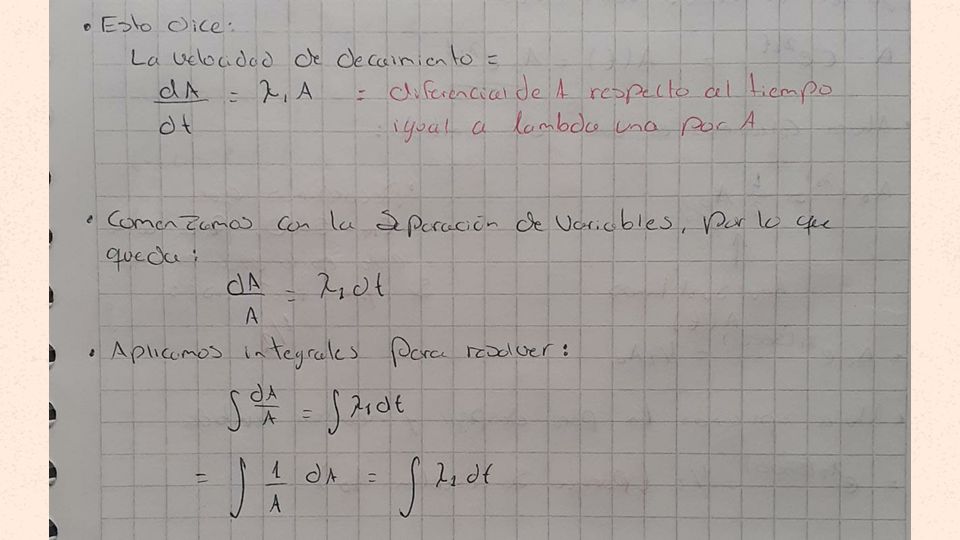 • Esto dice:
La velocidad de decaimiento =
dA/dt = λ₁A = diferencial de A respecto al tiempo
igual a lambda uno por A
• Comenzamos con la Separación de variables, por lo que
queda:
dA/A = λ₁dt
• Aplicamos integrales para resolver:
∫ dA/A = ∫ λ₁dt
= ∫ 1/A dA = ∫ λ₁ dt